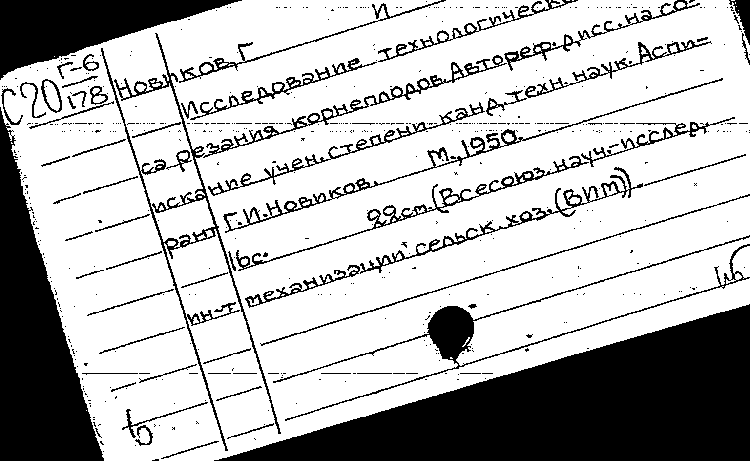 С20 Г-6/178
Новиков, Г И
Исследование технологическо
са резания корнеплодов. Автореф. дисс. на со-
искание учен. степени канд. техн. наук. Аспи-
рант Г.И. Новиков. М., 1950.
16с. 22см. (Всесоюз. науч.-исслед.
ин-т механизации сельск. хоз. (ВИМ)).